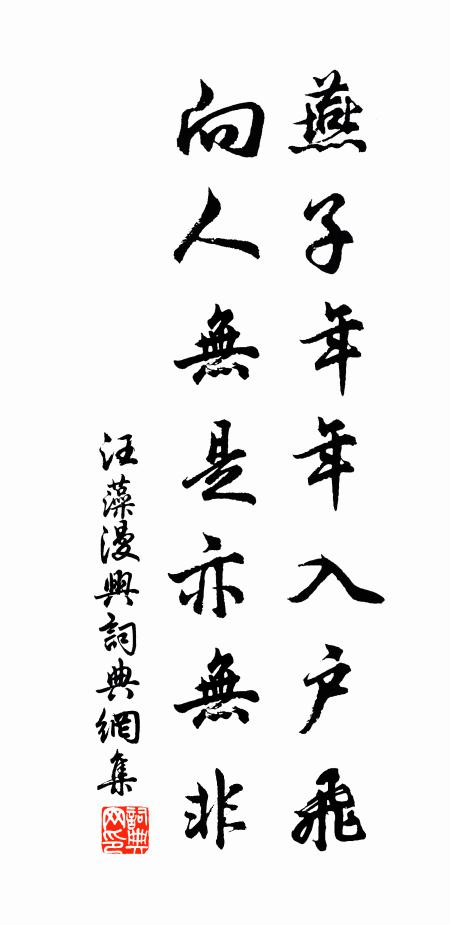 燕子年年入户飛
向人無是亦無非
汪藻漫興詞典網集
詞典网印